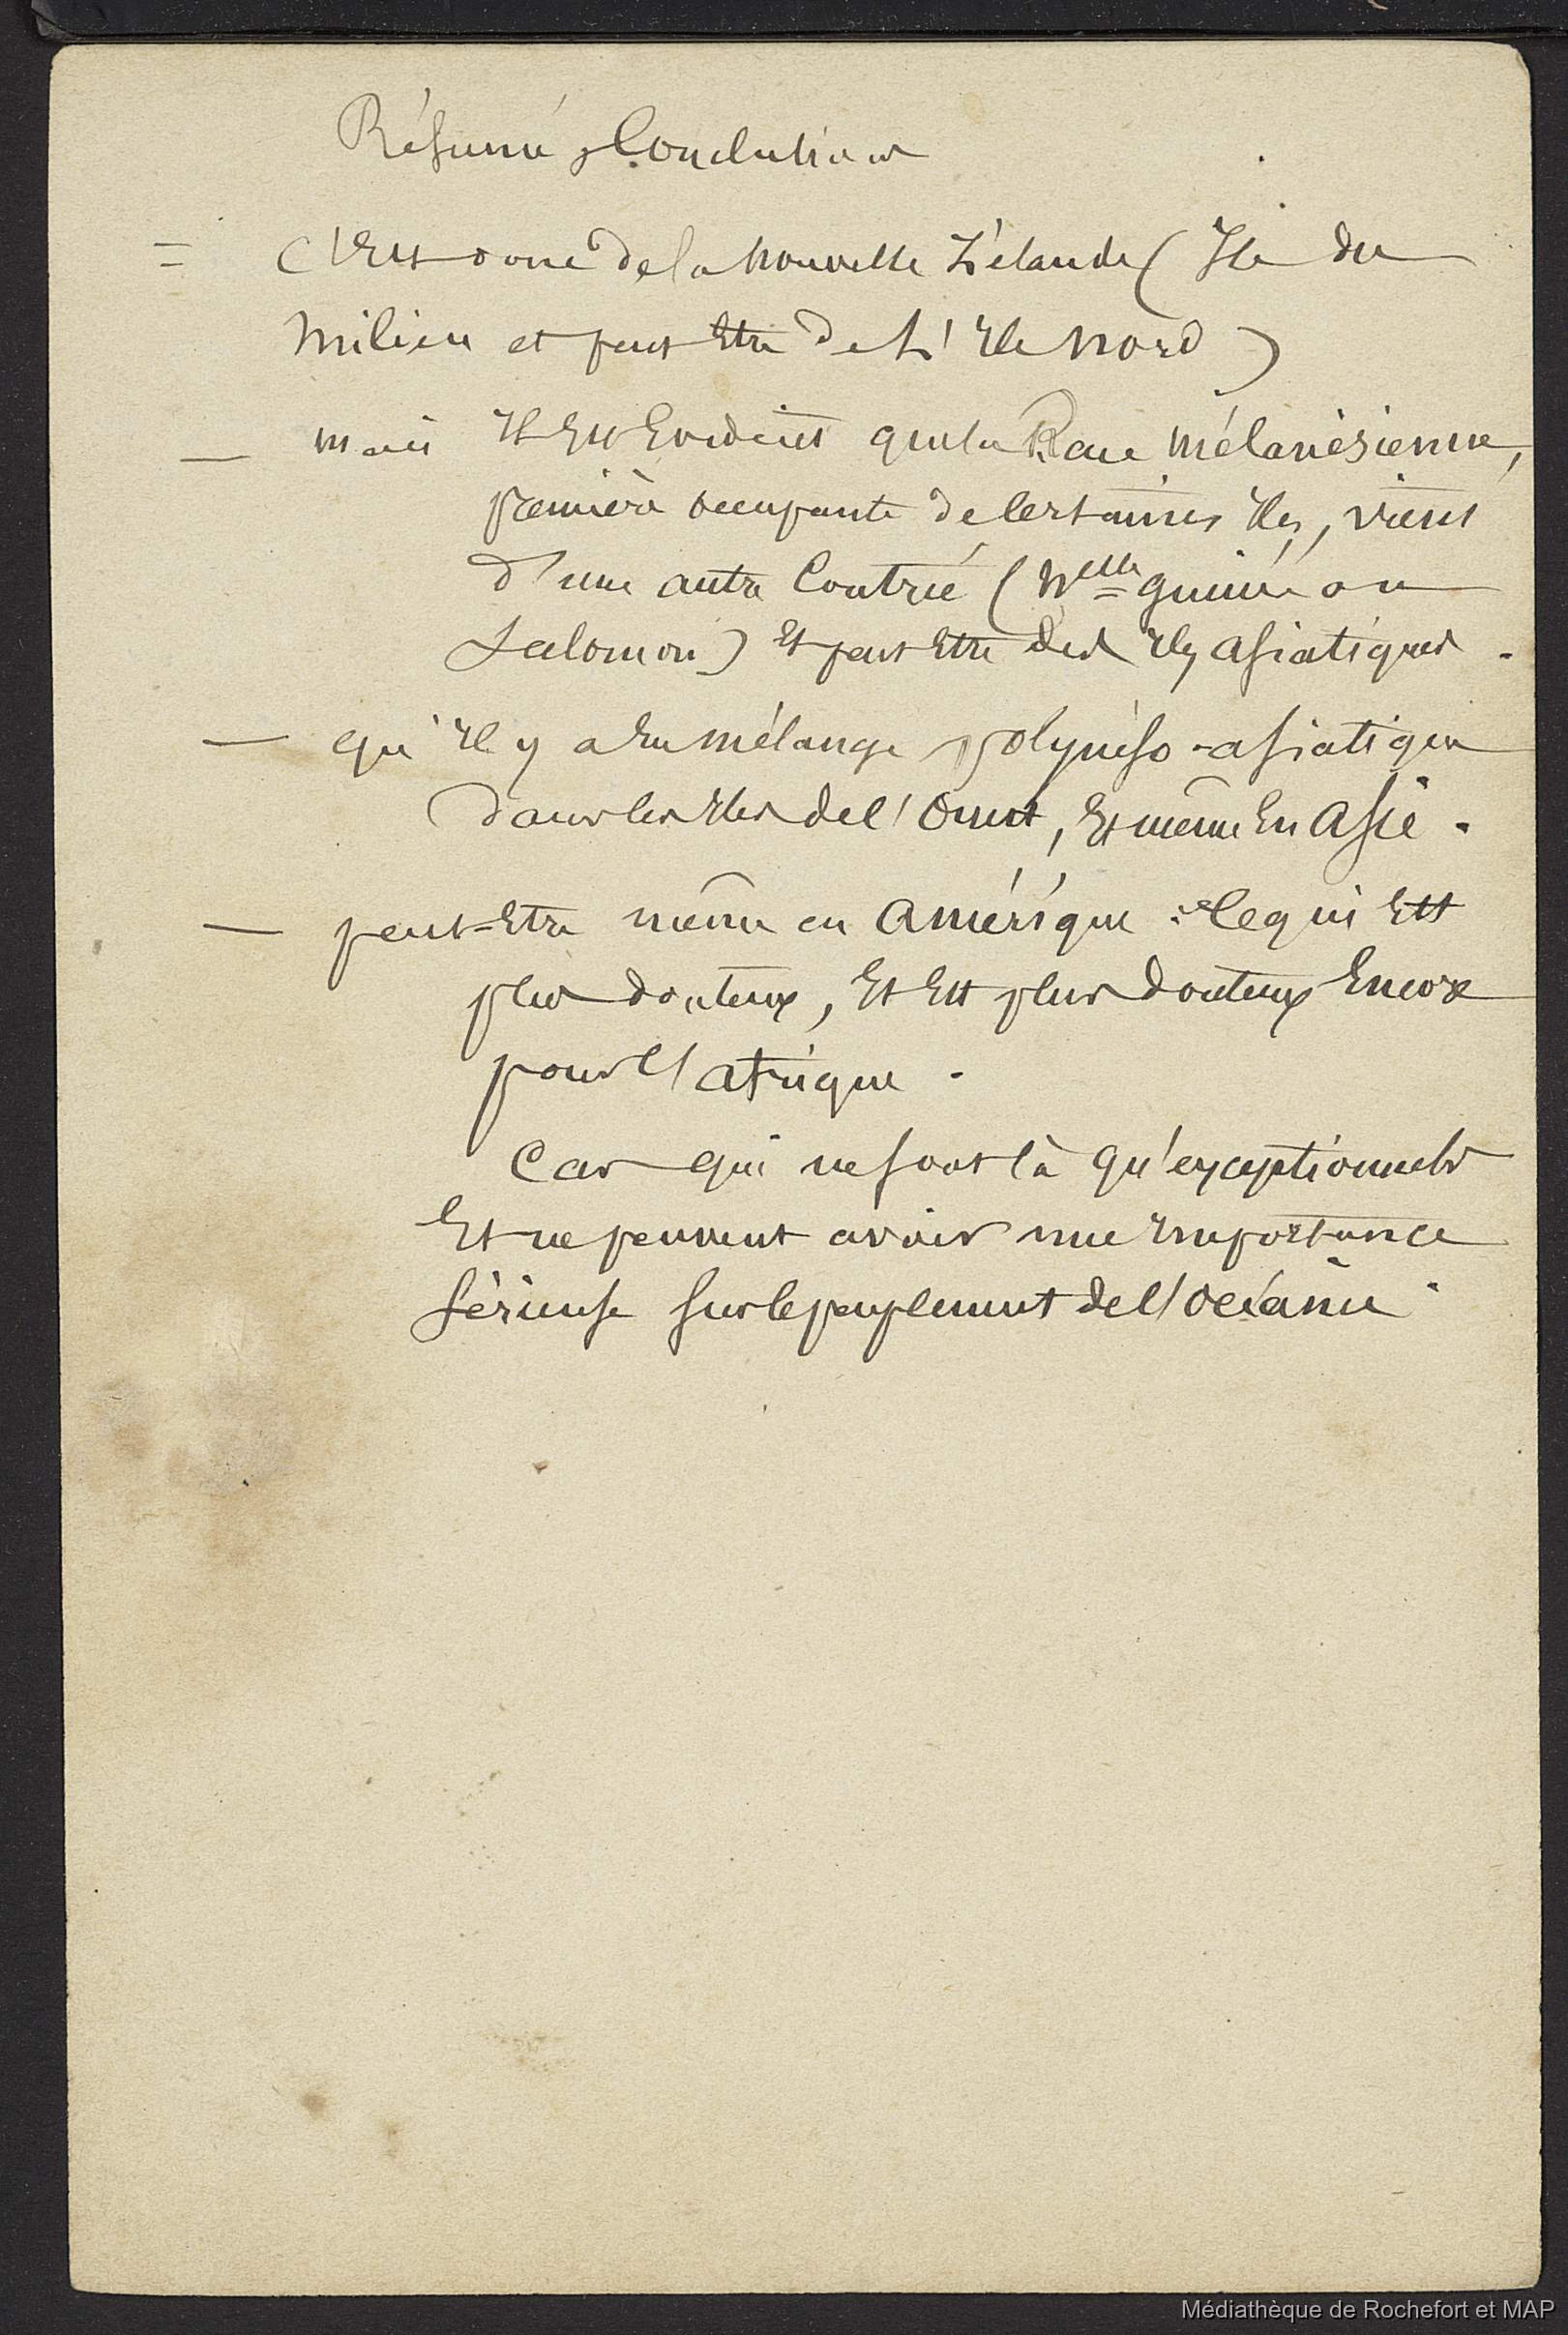 Résumé & Conclusions
= C'est donc de la Nouvelle Zélande ( Ile du
milieu et peut Etre de L'Ile Nord )
— mais Il Est Evident que la Race Mélanésienne,
première occupante de Certaines Iles, vient
d'une autre Contrée (Nelle Guinée ou
Salomon) Et peut Etre des Iles asiatiques.
— qu'Il y a Eu mélange polynéso-asiatique
dans les Iles de l'Ouest, Et même En Asie.
— peut-Etre même en Amérique : Ce qui Est
plus douteux, Et Est plus douteux Encore
pour l'afrique.
Cas qui ne sont là qu'exceptionnels
Et ne peuvent avoir une Importance
sérieuse sur le peuplement de l'océanie.
Médiathèque de Rochefort et MAP